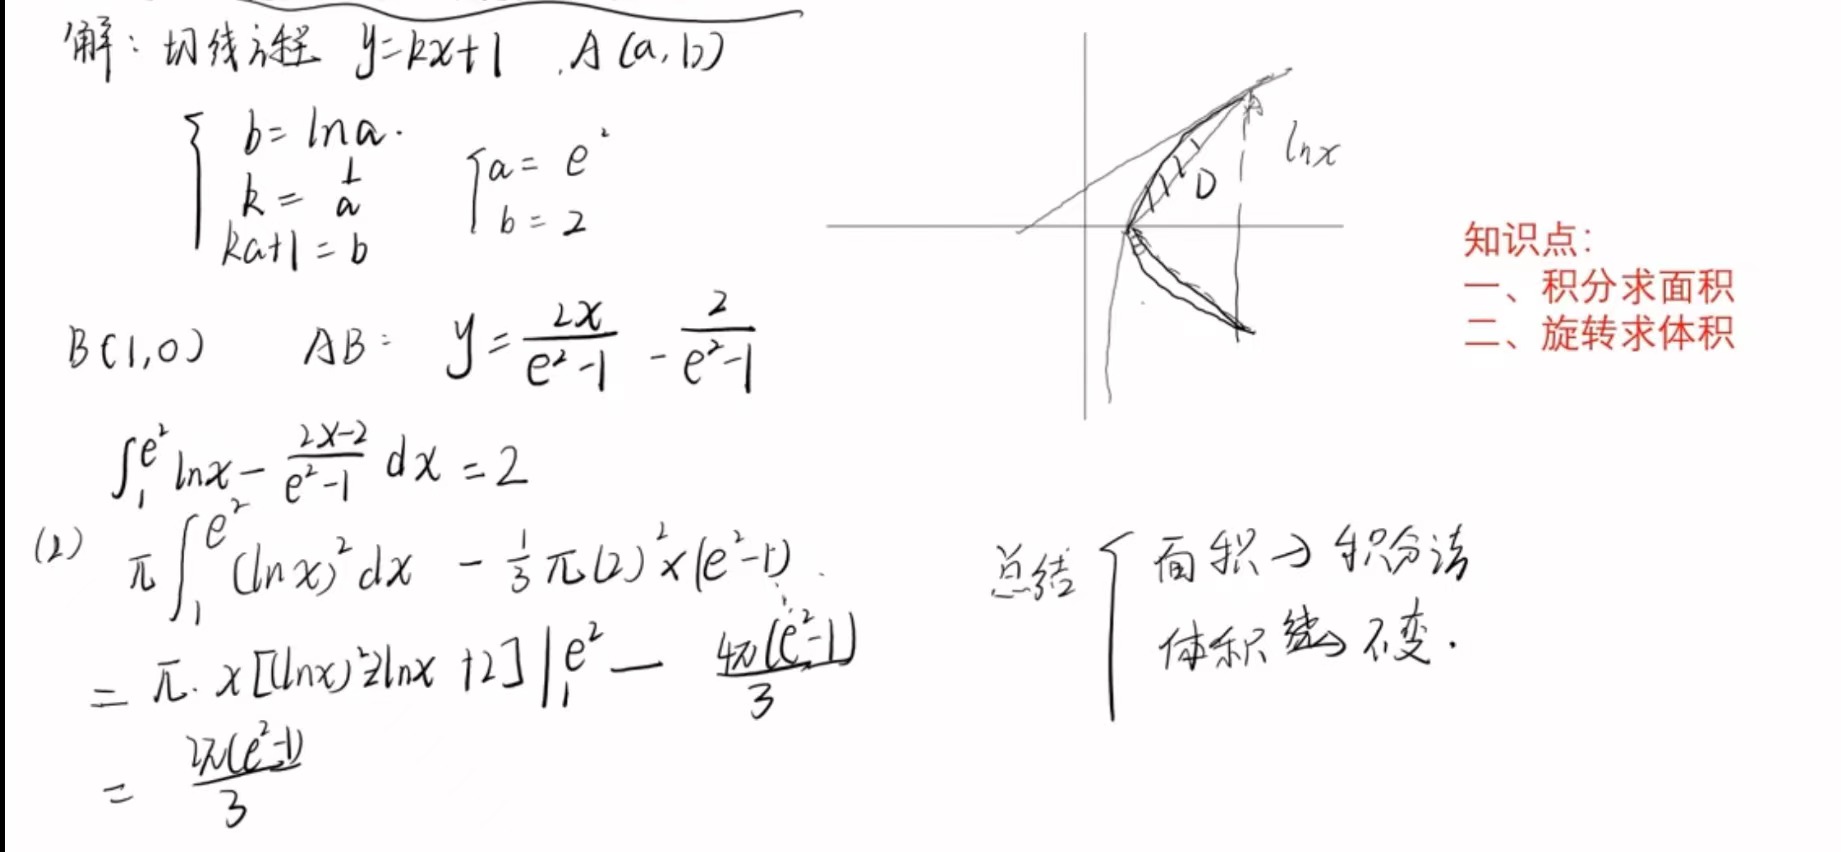 解：切线方程 y=kx+1 , A(a,b)
b=lna.
k=1/a
ka+1=b
a=e²
b=2
B(1,0) AB: y=2x/(e²-1) - 2/(e²-1)
∫₁^(e²) lnx - (2x-2)/(e²-1) dx =2
(2) π∫₁^(e²) (lnx)²dx - 1/3 π(2)²×(e²-1)
= π·x[(lnx)²-2lnx+2]|₁^(e²) - 4π(e²-1)/3
= 2π(e²-1)/3
lnx
D
知识点：
一、积分求面积
二、旋转求体积
总结
面积→积分法
体积 → 不变.